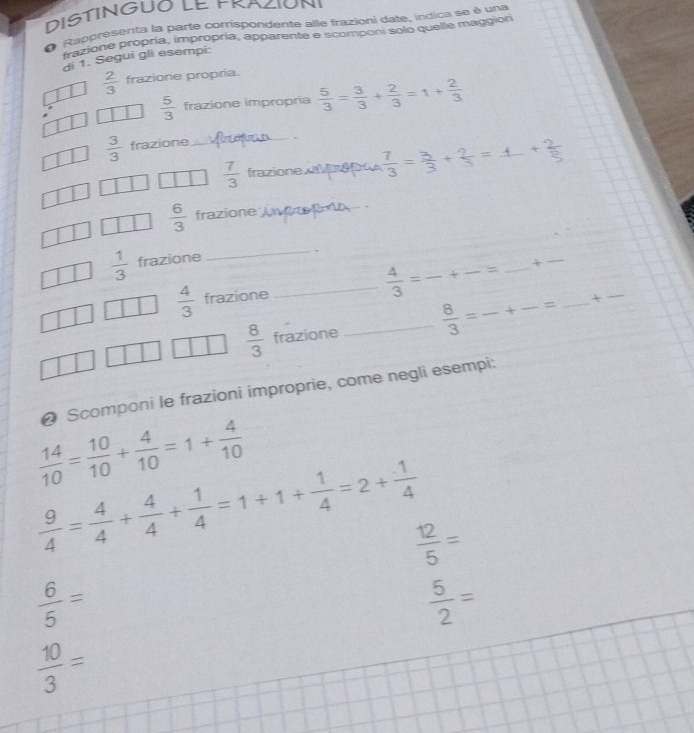 DISTINGUO LE FRAZIONI
1 Rappresenta la parte corrispondente alle frazioni date, indica se è una
frazione propria, impropria, apparente e scomponi solo quelle maggiori
di 1. Segui gli esempi:
2/3 frazione propria.
5/3 frazione impropria 5/3 = 3/3 + 2/3 = 1 + 2/3
3/3 frazione .
7/3 frazione impropria 7/3 = 3/3 + 2/3 = 1 + 2/3
6/3 frazione impropria .
1/3 frazione ______ .
4/3 frazione ______ 4/3 = — + — = __ + —
8/3 frazione ______ 8/3 = — + — = __ + —
2 Scomponi le frazioni improprie, come negli esempi:
14/10 = 10/10 + 4/10 = 1 + 4/10
9/4 = 4/4 + 4/4 + 1/4 = 1 + 1 + 1/4 = 2 + 1/4
6/5 = 12/5 =
10/3 = 5/2 =